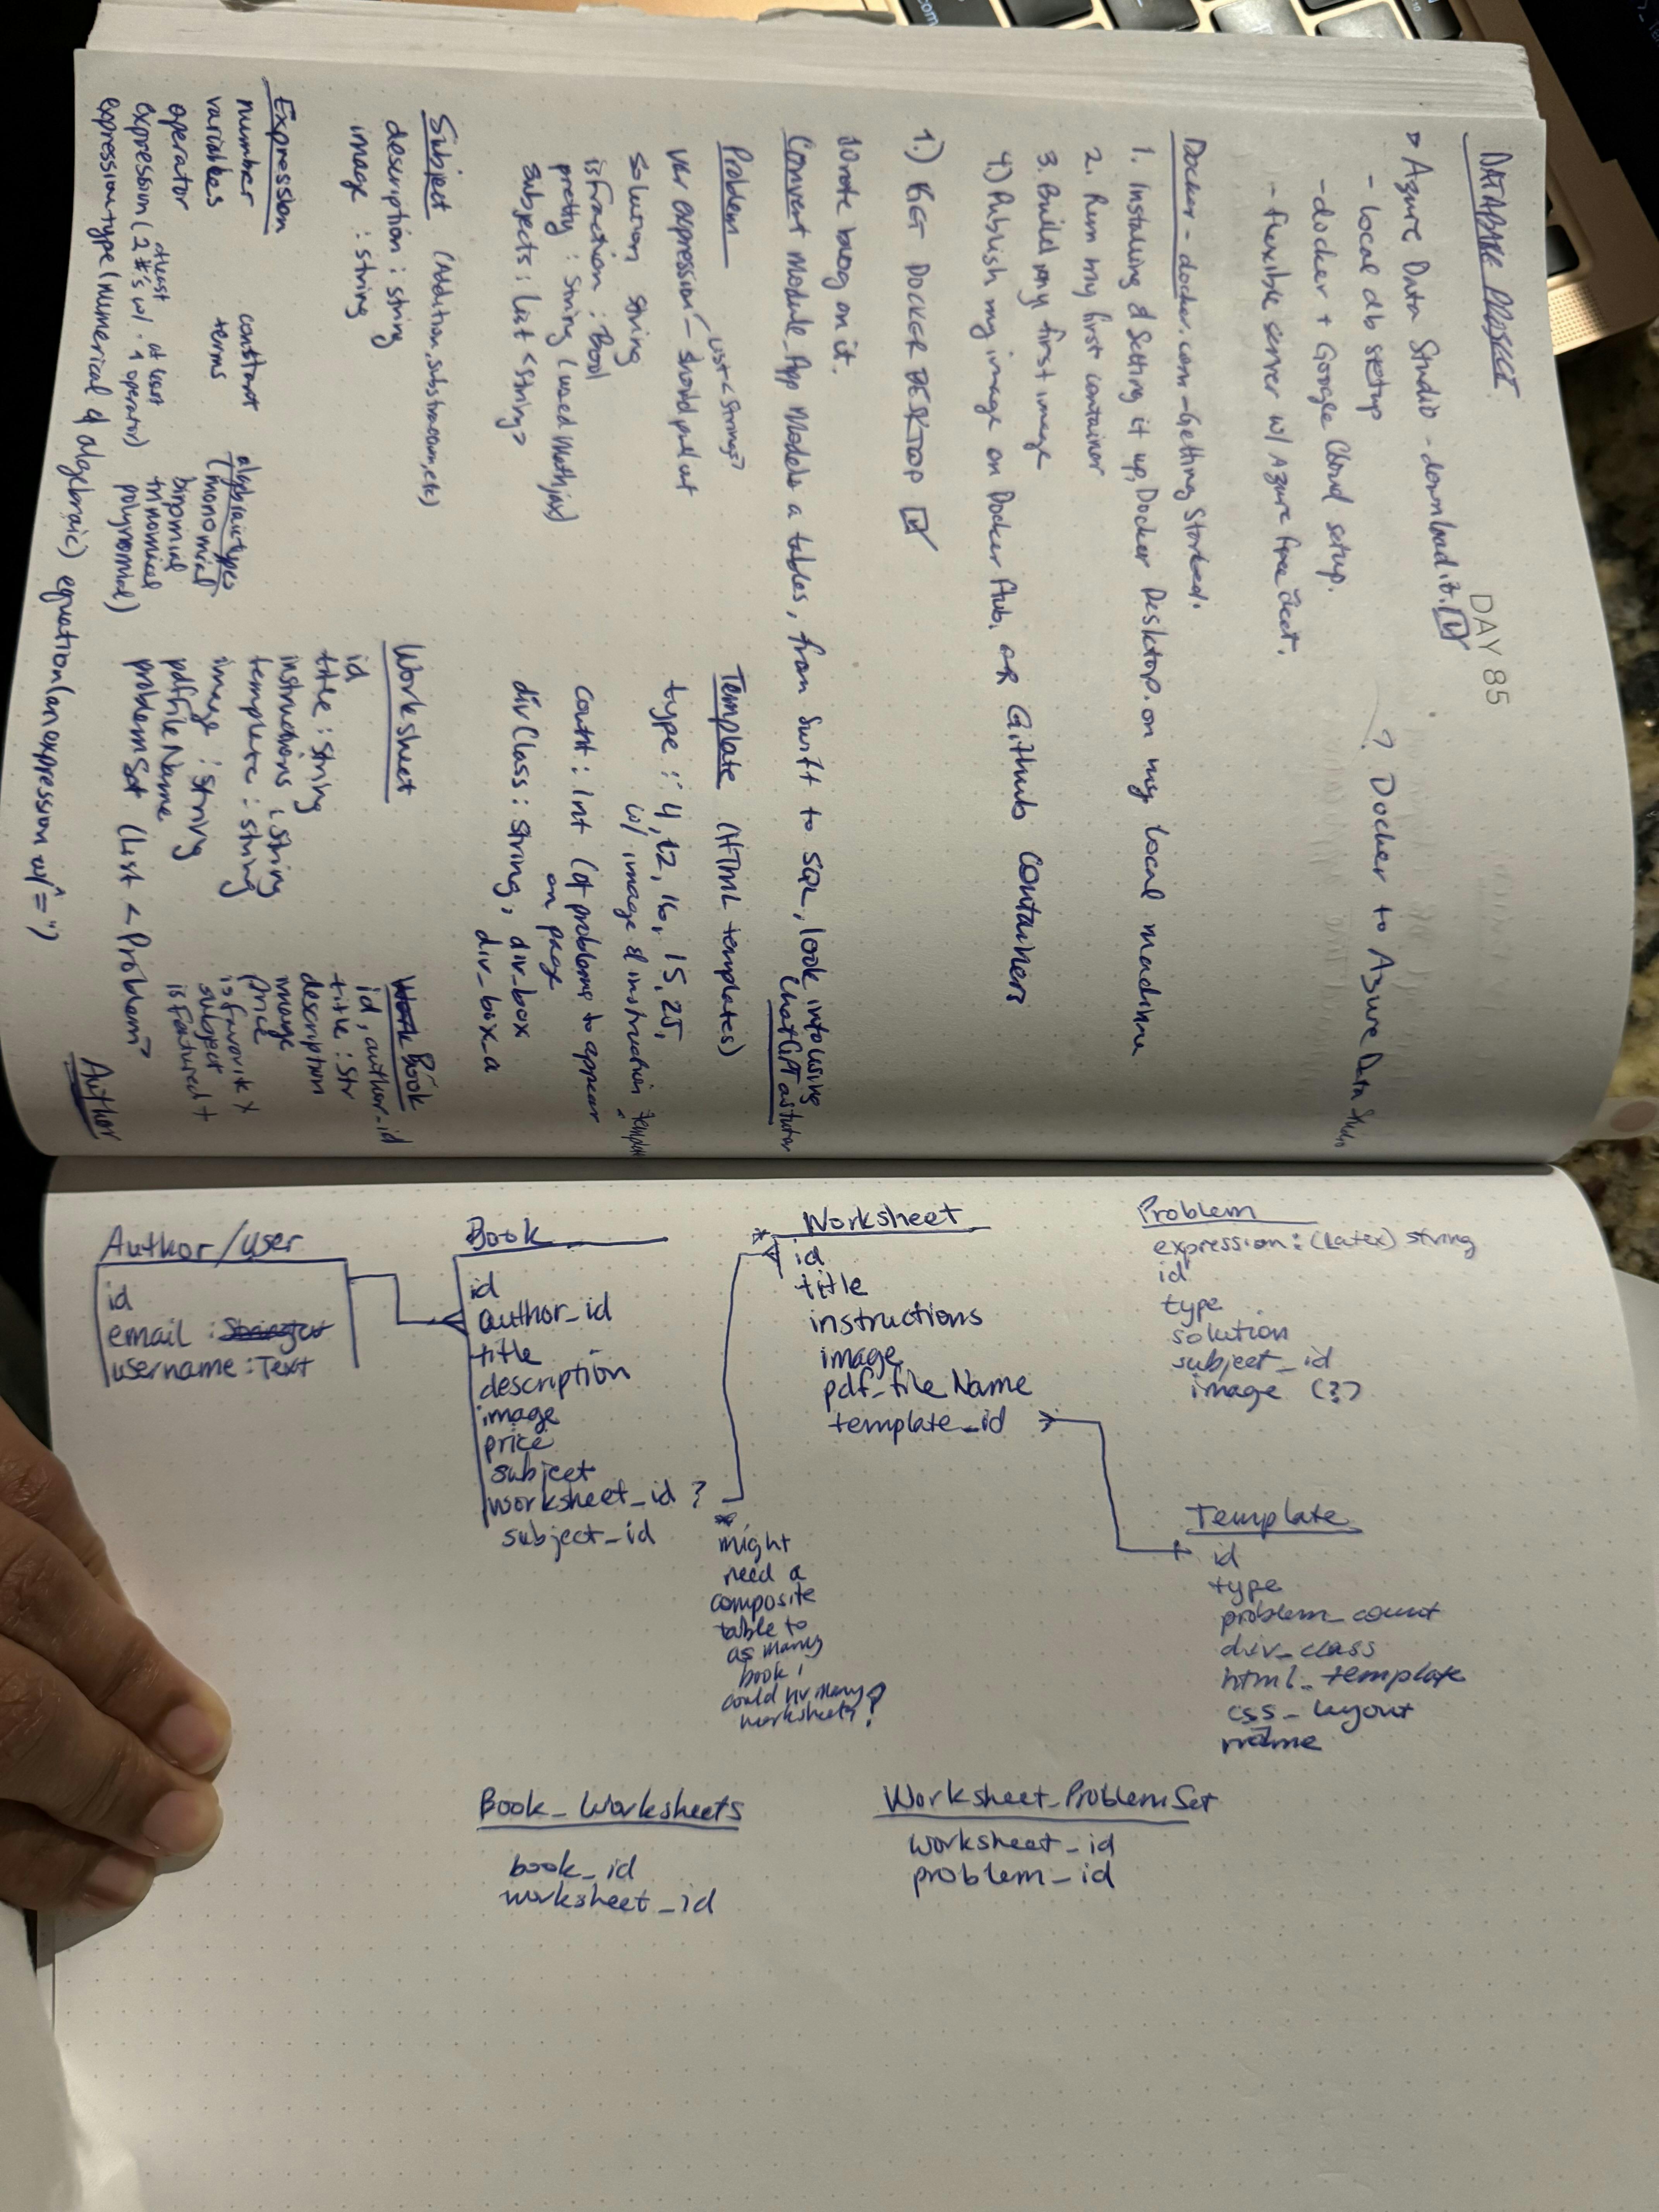 DATABASE PROJECT
DAY 85
Azure Data Studio - download it.
- local db setup
- docker + Google Cloud setup.
- flexible server w/ Azure free acct.
? Docker to Azure Data Studio
Docker - docker.com - Getting Started.
1. Installing & Setting it up, Docker Desktop on my local machine
2. Run my first container
3. Build my first image
4.) Publish my image on Docker Hub, or GitHub containers
1.) GET DOCKER DESKTOP
Wrote blog on it.
Convert Module App Models a tables, from Swift to SQL, look into using
ChatGPT as tutor
Problem
List<String>
var expression - should pull out
solution string
isFraction : Bool
pretty : String (used Mathjax)
subjects : List <String>
Template (HTML templates)
type : 4, 12, 16, 15, 25,
w/ image & instruction template
count : int (of problems to appear
on page
divClass : string, div_box
div_box_a
Subject (Addition, subtraction, etc)
description : string
image : string
Expression
number
variables
operator
expression (atleast 2 #'s w/ at least 1 operator)
expression type (numerical & algebraic) equation (an expression w/ "=")
constant
terms
algebraic types
(monomial
binomial
trinomial
polynomial)
Worksheet
id
title : string
instructions : string
template : string
image : string
pdffileName
problemSet (List <Problem>
Work Book
id, author_id
title : Str
description
image
price
isfavorite x
subject
is featured +
Author
Author/user
id
email :
username : Text
Book
id
author_id
title
description
image
price
subject
worksheet_id ?
subject_id
*
might
need a
composite
table to
as many
book
could hv many
worksheets?
* Worksheet
id
title
instructions
image
pdf_fileName
template_id
Problem
expression : (Latex) string
id
type
solution
subject_id
image (?)
Template
id
type
problem_count
div_class
html_template
css_layout
name
Book_Worksheets
book_id
worksheet_id
Worksheet_ProblemSet
worksheet_id
problem_id